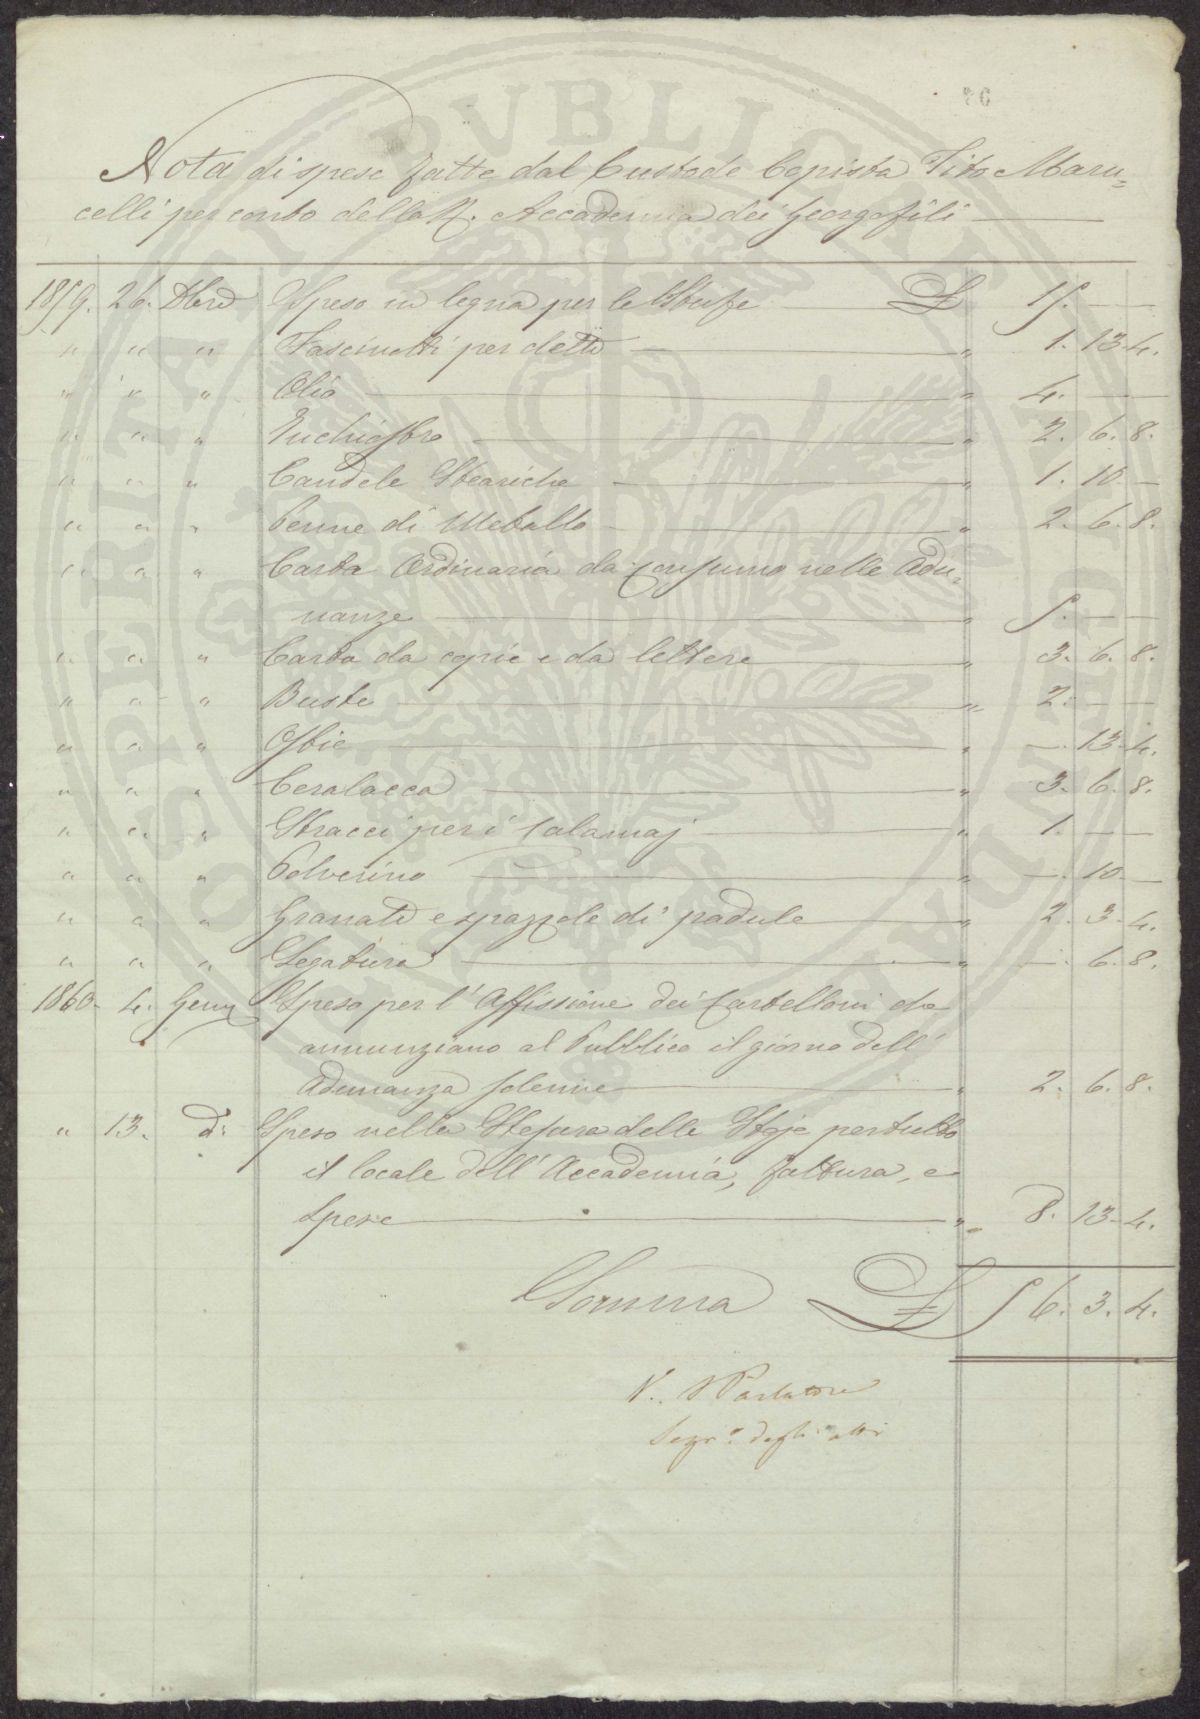 76
Nota di spese fatte dal Custode Copista Tito Maru=
celli per conto della R. Accademia dei Georgofili
1859. 26. Dbre Speso in legna per le Stufe £ 15. — —
" " " Fascinotti per dette " 1. 13. 4.
" " " Olio " 4. — —
" " " Inchiostro " 2. 6. 8.
" " " Candele Steariche " 1. 10. —
" " " Penne di Metallo " 2. 6. 8.
" " " Carta Ordinaria da consumo nelle Adu=
nanze " 5. — —
" " " Carta da copie e da lettere " 3. 6. 8.
" " " Buste " 2. — —
" " " Ostie " — 13. 4.
" " " Ceralacca " 3. 6. 8.
" " " Stracci per i Calamaj " 1. — —
" " " Polverino " — 10. —
" " " Granate e spazzole di padule " 2. 3. 4.
" " " Legatura " — 6. 8.
1860. 4. Genn Speso per l'Affissione dei Cartelloni che
annunziano al Pubblico il giorno dell'
Adunanza solenne " 2. 6. 8.
" 13. d: Speso nella Stesura delle Stoje per tutto
il locale dell'Accademia, fattura, e
spese " 8. 13. 4.
Somma £ 56. 3. 4.
V. Parlatore
Segr.o degli atti
PROSPERITATI PVBLICAE AVGENDAE